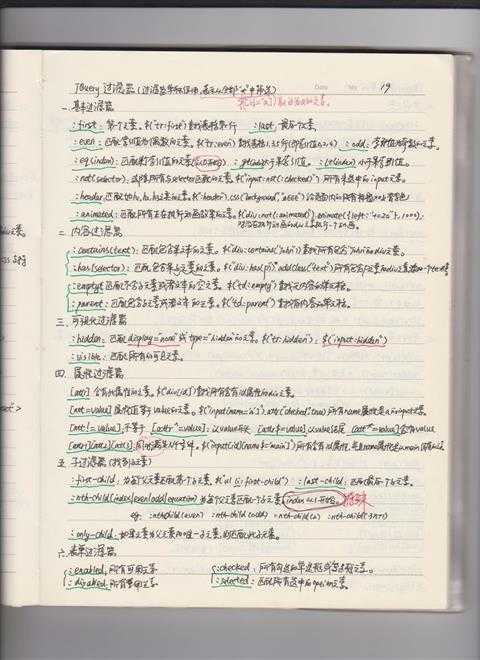 Date No 19
JQuery 过滤器
$("[id='a']")
一.基本过滤器
:first: 第一个元素. $("tr:first") 查找表格第一行 :last: 最后个元素.
:even: 匹配索引值为偶数的元素. $("tr:even") 查找表格1.3.5行(即索引值0.2.4) :odd: 索引值为奇数的元素.
:eq(index): 匹配索引值的元素(从0开始) :gt(index) 大于索引值. :lt(index) 小于索引值.
:not(selector): 去除所有与selector匹配的元素. $("input:not(:checked)") 所有未选中的input元素.
:header 匹配如h1.h2.h3之类的元素. $(":header").css("background","#EEE") 给页面内所有标题加上背景色
:animated: 匹配所有正在执行动画效果的元素. $("div:not(:animated)").animate({left:"+=20"},1000);
二. 内容过滤器
:contains(text): 匹配包含文本的元素. $("div:contains('John')") 查找所有包含"John"的div元素.
:has(selector): 匹配包含某元素的元素. $("div:has(p)").addClass("test") 所有包含p元素的div元素添加一个test类
:empty: 匹配不含子元素或者文本的空元素. $("td:empty") 查找无内容的单元格.
:parent: 匹配包含子元素或者文本的元素. $("td:parent") 查找有内容的单元格.
三. 可视化过滤器
:hidden: 匹配 display="none" 或 type="hidden"的元素. $("tr:hidden"); $("input:hidden")
:visible: 匹配所有的可见元素.
四. 属性过滤器
[attr] 含有此属性的元素. $("div[id]") 查找所有含有id属性的div元素.
[attr=value] 属性值等于value的元素. $("input[name='a']").attr("checked",true) 所有name属性是a的input元素.
[attr!=value]: 不等于. [attr^=value]: 以value开头 [attr$=value]: 以value结尾 [attr*=value] 含有value
[attr1][attr2][attr3]: 同时满足N个条件. $("input[id][name$='main']") 所有含有id属性, 并且name属性是以main结尾的
五. 子过滤器
:first-child: 为每个父元素匹配第一个子元素. $("ul li:first-child") :last-child: 匹配最后一个子元素.
:nth-child(index/even/odd/equation) 为每个父元素匹配一个子元素. index从1开始.
eg: :nth-child(even) :nth-child(odd) :nth-child(2) :nth-child(3n+1)
:only-child: 如果元素为父元素的唯一子元素, 则匹配此子元素.
六. 表单过滤器
:enabled: 所有可用元素 :checked: 所有勾选的单选框或复选框元素.
:disabled: 所有禁用元素. :selected: 匹配所有选中的option元素.